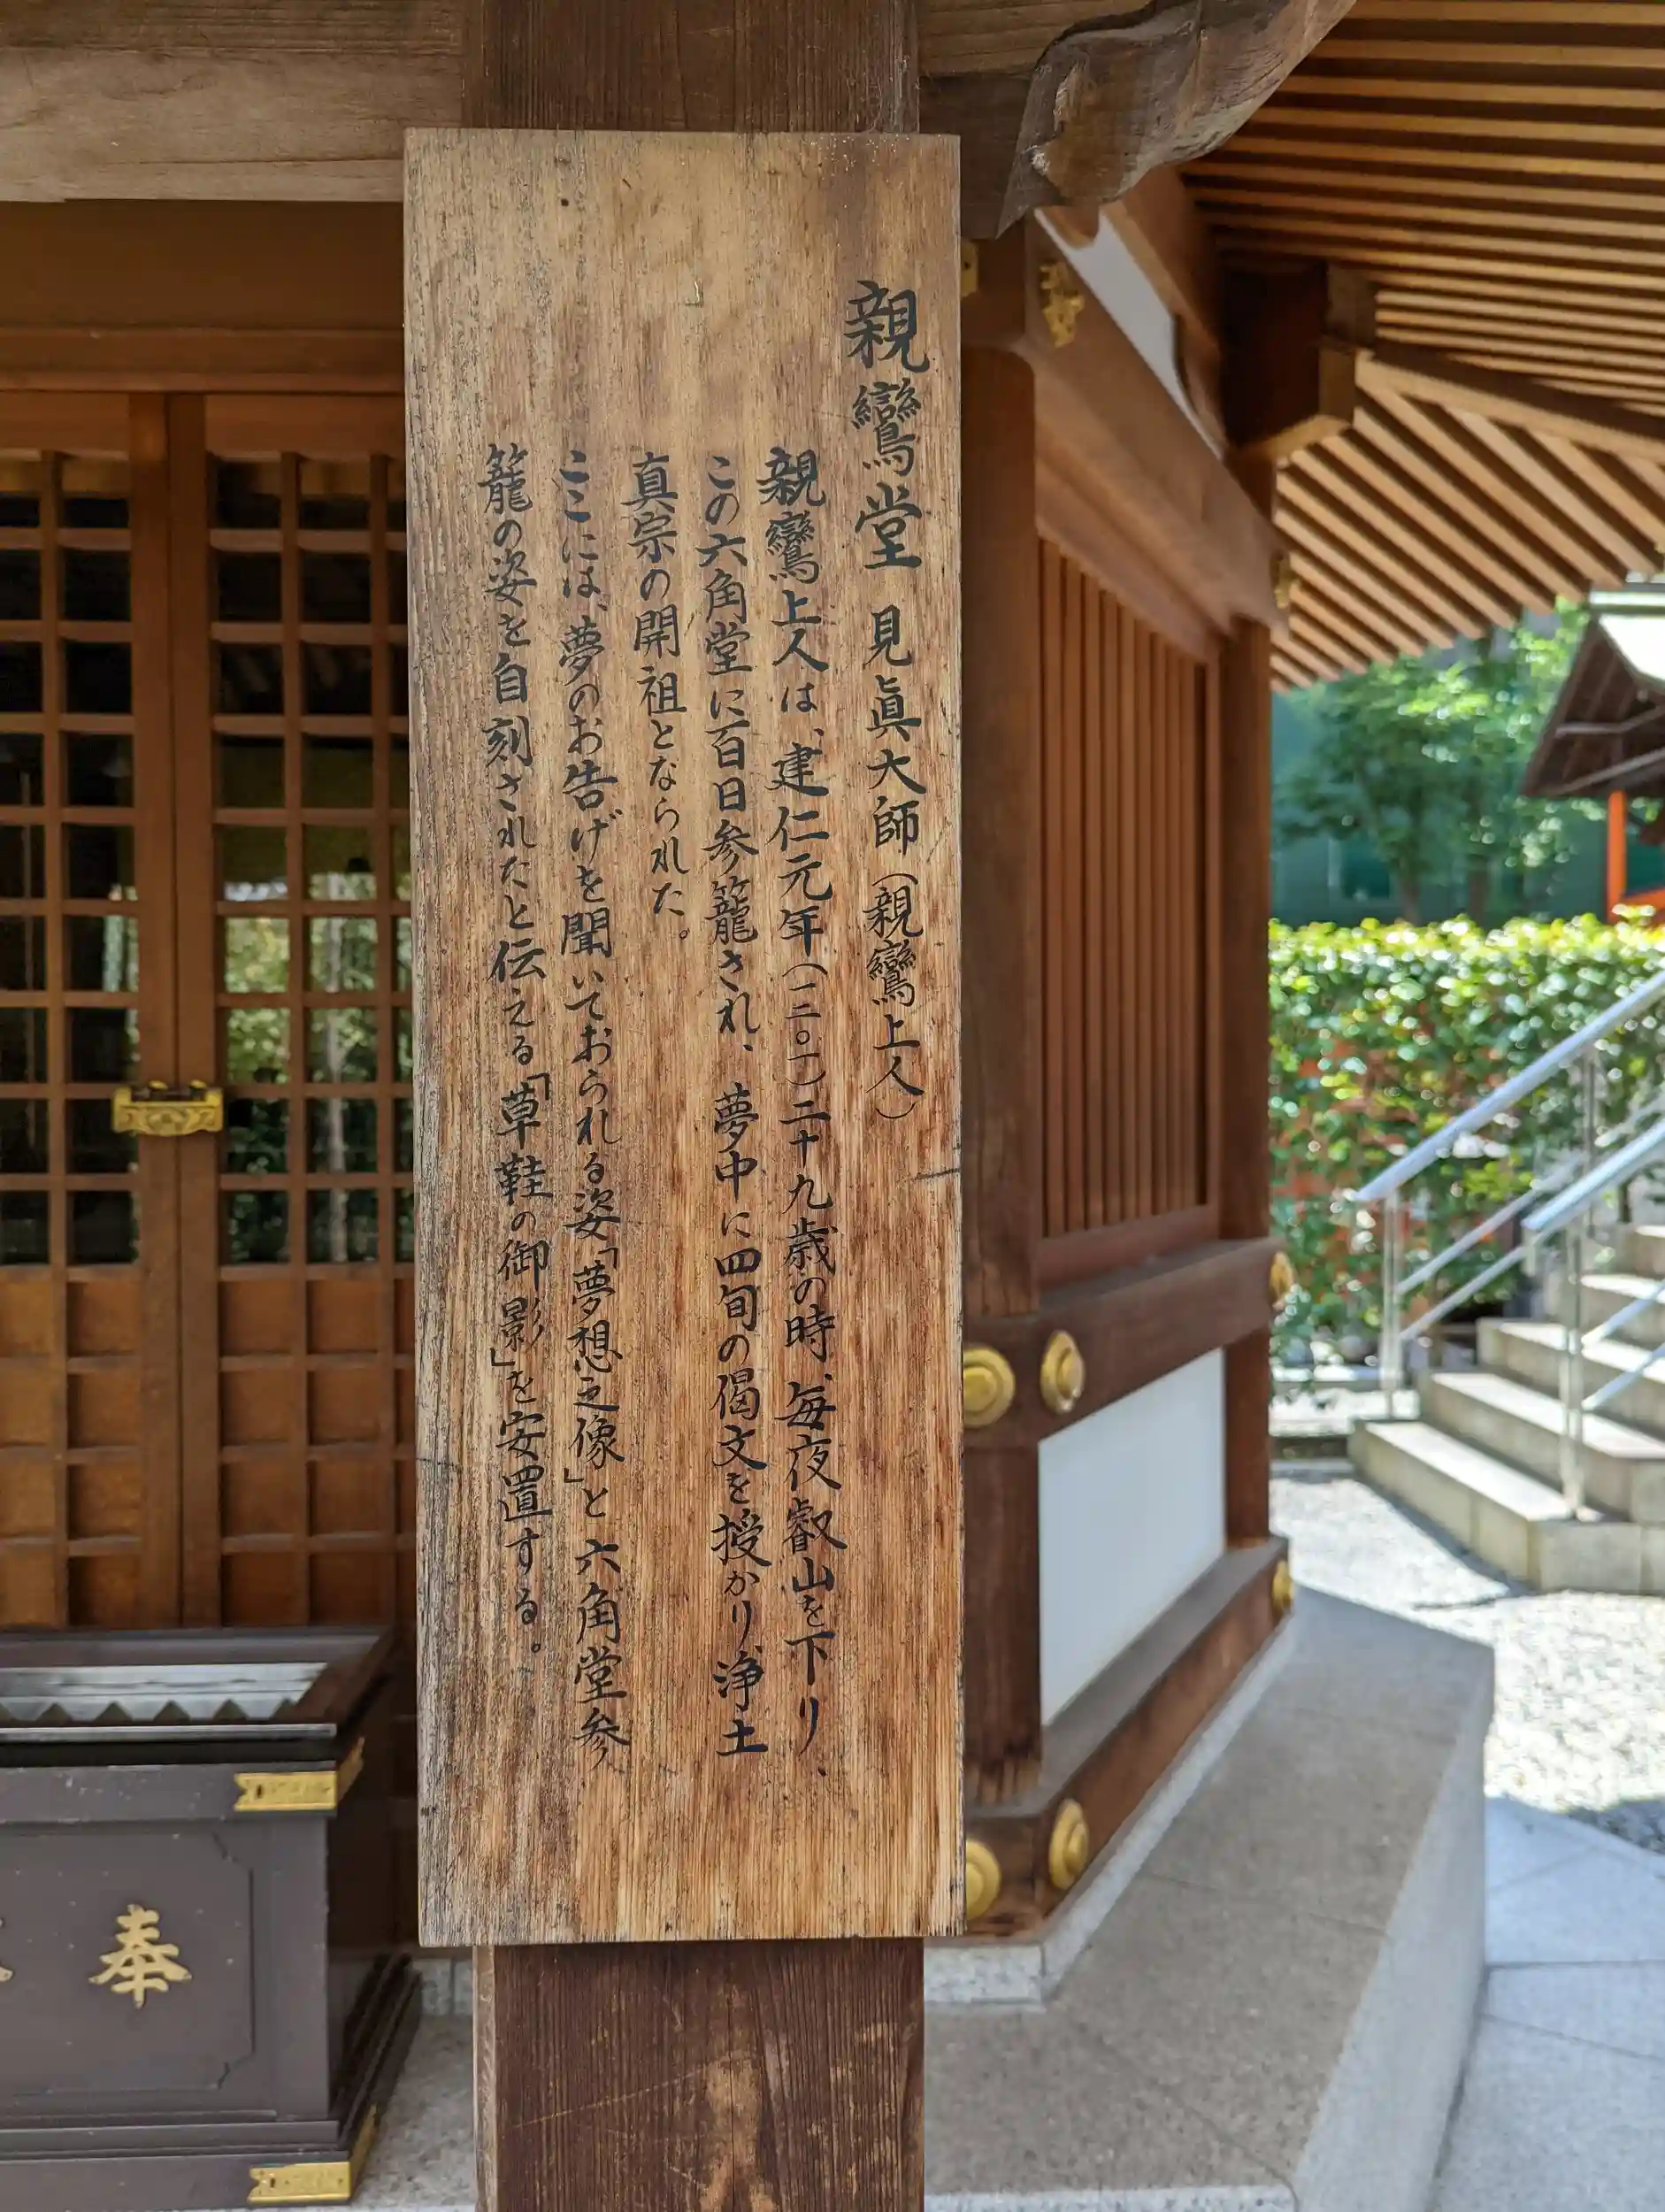 親鸞堂 見眞大師(親鸞上人)
親鸞上人は、建仁元年(一二〇一)二十九歳の時、毎夜叡山を下り、
この六角堂に百日参籠され、夢中に四旬の偈文を授かり浄土
真宗の開祖となられた。
ここには、夢のお告げを聞いておられる姿「夢想之像」と六角堂参
籠の姿を自刻されたと伝える「草鞋の御影」を安置する。
奉